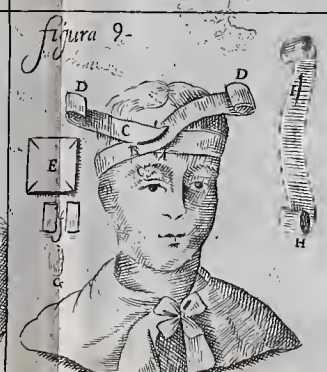 figura 9-
D D
C
B A
E
F
G
H